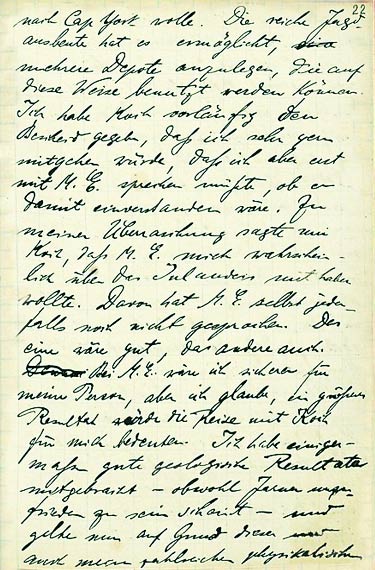 22
nach Cap York wolle. Die reiche Jagd-
ausbeute hat es ermöglicht,
mehrere Depots anzulegen, die auf
diese Weise benutzt werden können.
Ich habe Koch vorläufig den
Bescheid gegeben, daß ich sehr gern
mitgehen würde, daß ich aber erst
mit M. E. sprechen müßte, ob er
damit einverstanden wäre. Zu
meiner Überraschung sagte mir
Koch, daß M. E. mich wahrschein-
lich über das Inlandeis mit haben
wollte. Davon hat M. E. selbst jeden-
falls noch nicht gesprochen. Das
eine wäre gut, das andere auch.
Bei M. E. wäre ich sicherer für
meine Person, aber ich glaube, ein größeres
Resultat würde die Reise mit Koch
für mich bedeuten. Ich habe einiger-
maßen gute geologische Resultate
mitgebracht – obwohl Jarner unzu-
frieden zu sein scheint – und
gelte nun auf Grund dieser
auch meiner zahlreichen physikalischen